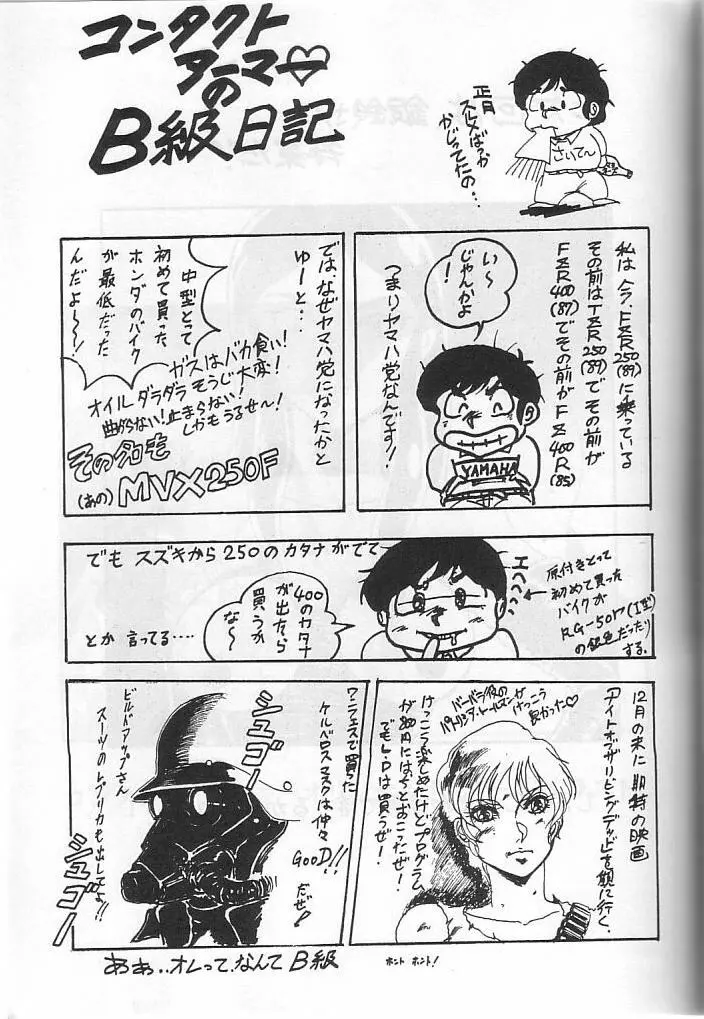 コンタクト
アーマー
の
B級日記
正月
スルメばっか
かじってたの…
さいてー
私は今、FZR250(89)に乗っている
その前はTZR250(89)でその前が
FZR400(87)でその前がFZ400R(85)
い～
じゃんかよ
!
つまりヤマハ党なんです!
YAMAHA
では、なぜヤマハ党になったかと
ゆーと…
中型とって
初めて買った
ホンダのバイク
が最低だった
んだよ～～!
ガスはバカ食い!
オイルダラダラそうじ大変!
曲がらない!止まらない!
しかもうるせ～!
その名も
(あの)MVX250F
でもスズキから250のカタナがでて
400のカタナ
が出たら
買うか
な～
とか言ってる……
エヘヘヘ
原付きとって
初めて買った
バイクが
RG-50Γ(I型)
の銀色だったり
する。
12月の末に期待の映画
「ナイトオブザリビングデッド」を観に行く、
バーバラ役の
パトリシア・トールマンが
けっこう
良かった♡
けっこう楽しめたけどプログラム
が800円にはちとおこったぜ!
でもL・Dは買うぜ!
ワンフェスで買った
ケルベロスマスクは仲々
GooD!!
だぜ!
シュゴー
ビルドアップさん
スーツのレプリカも出してよ!!
シュゴー
あぁ..オレって、なんてB級
ホント ホント!